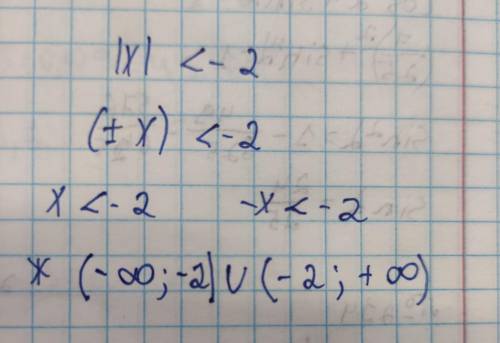 |x| < -2
(± x) < -2
x < -2 -x < -2
* (-∞; -2] ∪ (-2; +∞)